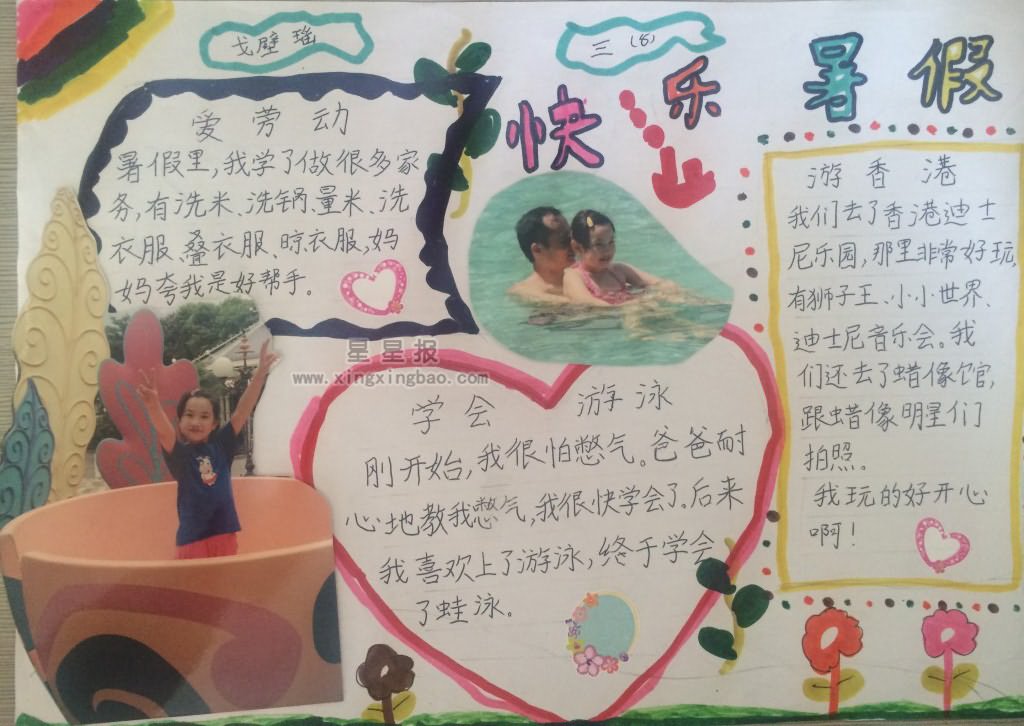 戈壁瑶
三(8)
快乐暑假
爱劳动
暑假里,我学了做很多家
务,有洗米、洗锅、量米、洗
衣服、叠衣服、晾衣服,妈
妈夸我是好帮手。
星星报
www.xingxingbao.com
学会游泳
刚开始,我很怕憋气。爸爸耐
心地教我憋气,我很快学会了。后来
我喜欢上了游泳,终于学会
了蛙泳。
游香港
我们去了香港迪士
尼乐园,那里非常好玩,
有狮子王、小小世界、
迪士尼音乐会。我
们还去了蜡像馆,
跟蜡像明星们
拍照。
我玩的好开心
啊!